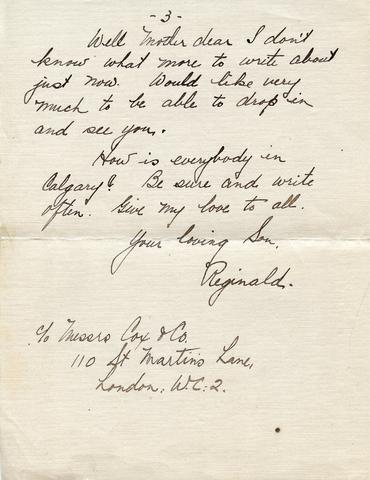 -3-
Well Mother dear I don't
know what more to write about
just now. Would like very
much to be able to drop in
and see you.
How is everybody in
Calgary? Be sure and write
often. Give my love to all.
Your loving Son,
Reginald.
c/o Messrs Cox & Co.
110 St Martin's Lane,
London, W.C.2.